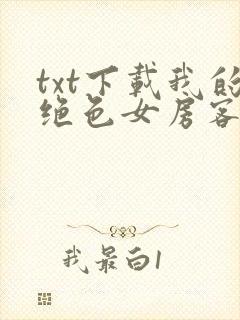 txt下载我的
绝色女房客
我最白1